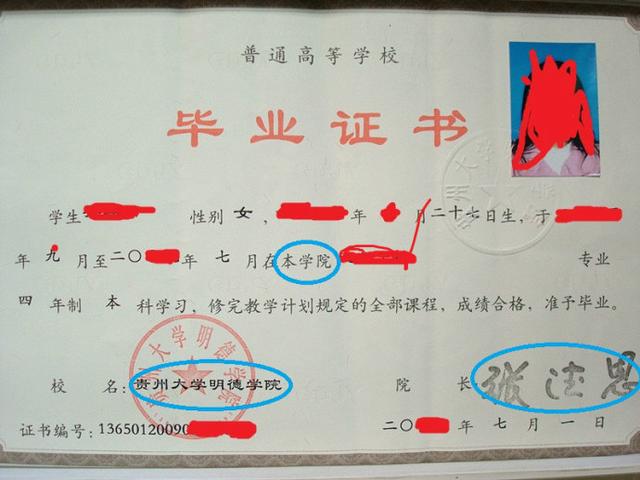 普通高等学校
毕业证书
学生 性别 女， 年 月二十六日生，于
年 九 月至二〇 年 七 月在本学院 专业
四 年制 本 科学习，修完教学计划规定的全部课程，成绩合格，准予毕业。
校 名：贵州大学明德学院 院 长
证书编号：13650120090 二〇 年 七 月 一 日
贵州大学明德学院